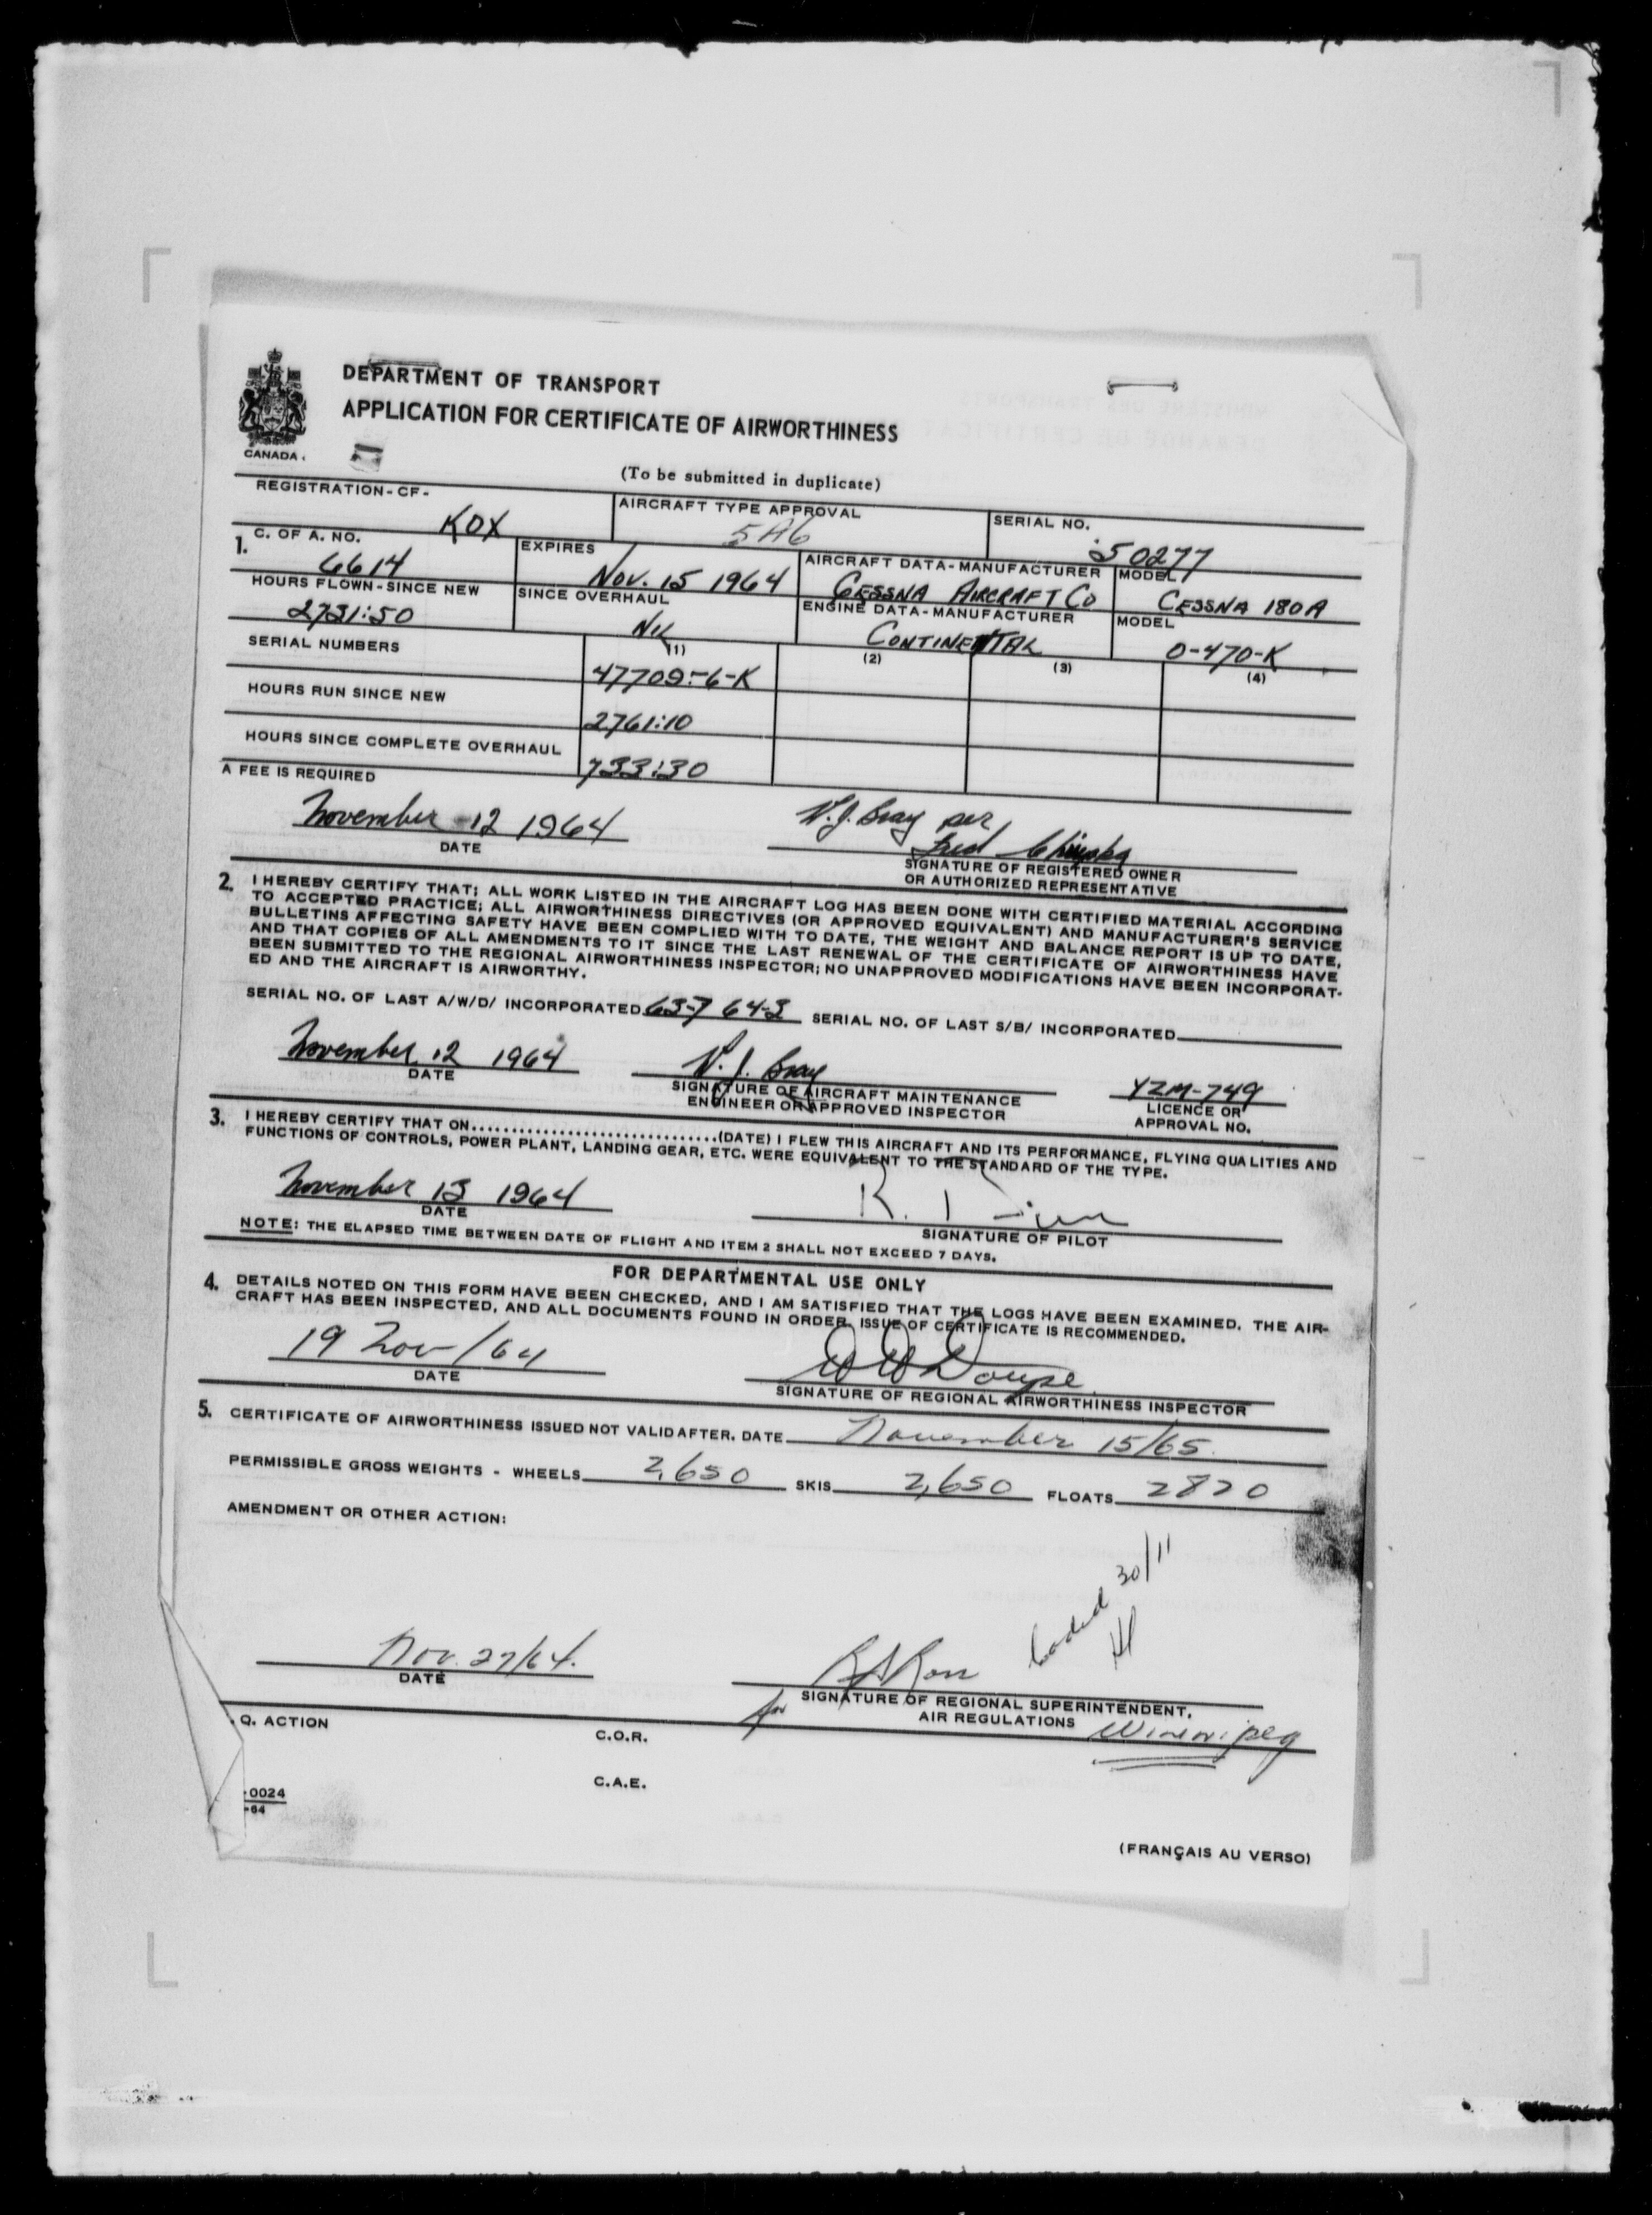 DEPARTMENT OF TRANSPORT
APPLICATION FOR CERTIFICATE OF AIRWORTHINESS
CANADA
(To be submitted in duplicate)
REGISTRATION-CF- KOX
AIRCRAFT TYPE APPROVAL 5A6
SERIAL NO. 50277
1. C. OF A. NO. 6614
EXPIRES Nov. 15 1964
AIRCRAFT DATA-MANUFACTURER CESSNA AIRCRAFT CO
MODEL CESSNA 180A
HOURS FLOWN-SINCE NEW 2731:50
SINCE OVERHAUL NIL
ENGINE DATA-MANUFACTURER CONTINENTAL
MODEL O-470-K
SERIAL NUMBERS (1) 47709-6-K (2) (3) (4)
HOURS RUN SINCE NEW 2761:10
HOURS SINCE COMPLETE OVERHAUL 733:30
A FEE IS REQUIRED
November 12 1964
DATE
W.J. Bray per
Fred
SIGNATURE OF REGISTERED OWNER
OR AUTHORIZED REPRESENTATIVE
2. I HEREBY CERTIFY THAT; ALL WORK LISTED IN THE AIRCRAFT LOG HAS BEEN DONE WITH CERTIFIED MATERIAL ACCORDING
TO ACCEPTED PRACTICE; ALL AIRWORTHINESS DIRECTIVES (OR APPROVED EQUIVALENT) AND MANUFACTURER'S SERVICE
BULLETINS AFFECTING SAFETY HAVE BEEN COMPLIED WITH TO DATE, THE WEIGHT AND BALANCE REPORT IS UP TO DATE,
AND THAT COPIES OF ALL AMENDMENTS TO IT SINCE THE LAST RENEWAL OF THE CERTIFICATE OF AIRWORTHINESS HAVE
BEEN SUBMITTED TO THE REGIONAL AIRWORTHINESS INSPECTOR; NO UNAPPROVED MODIFICATIONS HAVE BEEN INCORPORAT-
ED AND THE AIRCRAFT IS AIRWORTHY.
SERIAL NO. OF LAST A/W/D/ INCORPORATED 63-7 64-3 SERIAL NO. OF LAST S/B/ INCORPORATED
November 12 1964
DATE
W.J. Bray
SIGNATURE OF AIRCRAFT MAINTENANCE
ENGINEER OR APPROVED INSPECTOR
YZM-749
LICENCE OR
APPROVAL NO.
3. I HEREBY CERTIFY THAT ON..............................(DATE) I FLEW THIS AIRCRAFT AND ITS PERFORMANCE, FLYING QUALITIES AND
FUNCTIONS OF CONTROLS, POWER PLANT, LANDING GEAR, ETC. WERE EQUIVALENT TO THE STANDARD OF THE TYPE.
November 13 1964
DATE
SIGNATURE OF PILOT
NOTE: THE ELAPSED TIME BETWEEN DATE OF FLIGHT AND ITEM 2 SHALL NOT EXCEED 7 DAYS.
FOR DEPARTMENTAL USE ONLY
4. DETAILS NOTED ON THIS FORM HAVE BEEN CHECKED, AND I AM SATISFIED THAT THE LOGS HAVE BEEN EXAMINED. THE AIR-
CRAFT HAS BEEN INSPECTED, AND ALL DOCUMENTS FOUND IN ORDER. ISSUE OF CERTIFICATE IS RECOMMENDED.
19 Nov/64
DATE
SIGNATURE OF REGIONAL AIRWORTHINESS INSPECTOR
5. CERTIFICATE OF AIRWORTHINESS ISSUED NOT VALID AFTER. DATE November 15/65.
PERMISSIBLE GROSS WEIGHTS - WHEELS 2,650 SKIS 2,650 FLOATS 2820
AMENDMENT OR OTHER ACTION:
Coded 30/11
Nov. 27/64.
DATE
for
SIGNATURE OF REGIONAL SUPERINTENDENT,
AIR REGULATIONS
Winnipeg
.Q. ACTION
C.O.R.
C.A.E.
-0024
-64
(FRANÇAIS AU VERSO)